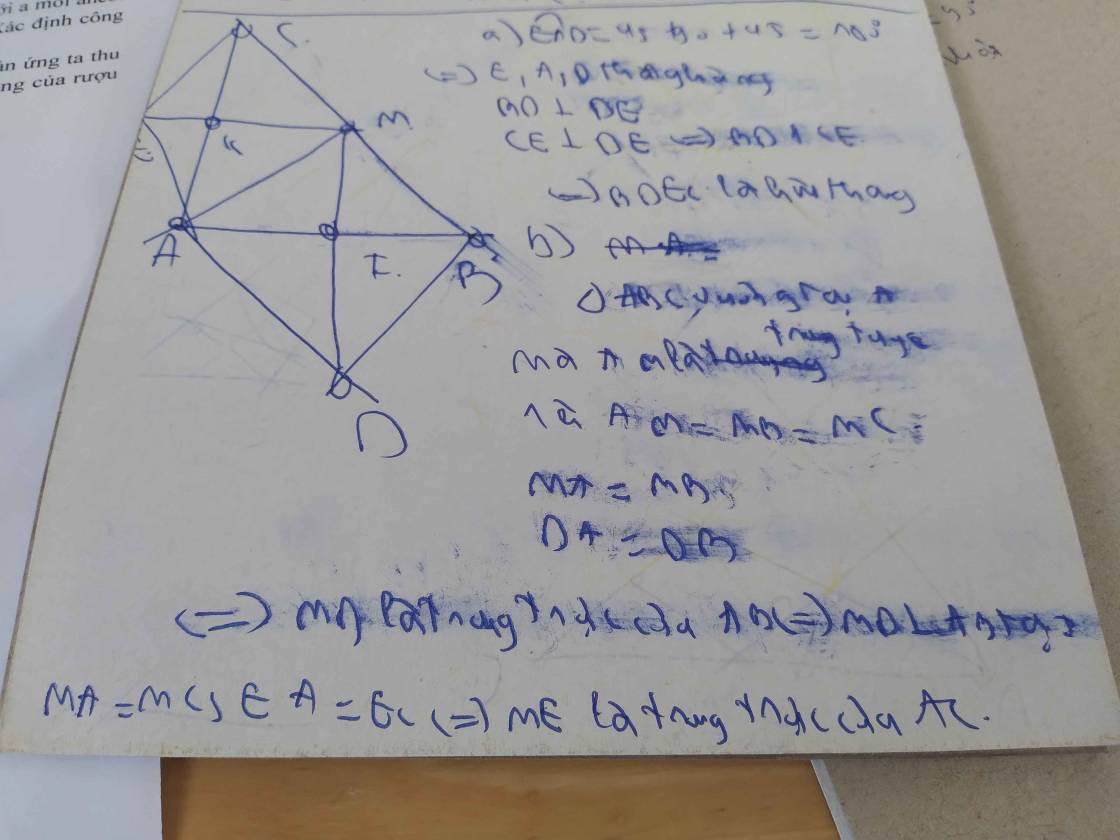 ới a mol
Xác định công
ản ứng ta thu
ng của rượu
C
M
K
E
A
I
B
D
a) EAD = 45 + 90 + 45 = 180
<=> E, A, D thẳng hàng
BD ⊥ DE
CE ⊥ DE => BD CE
=> BDEC là hình thang
b) MA =
ABC vuông tại A
mà AM là trung tuyế
là AM = MB = MC
MA = MB
DA = DB
<=> MD là trung trực của AB <=> MD ⊥ AB tại I
MA = MC, EA = EC <=> ME là trung trực của AC.